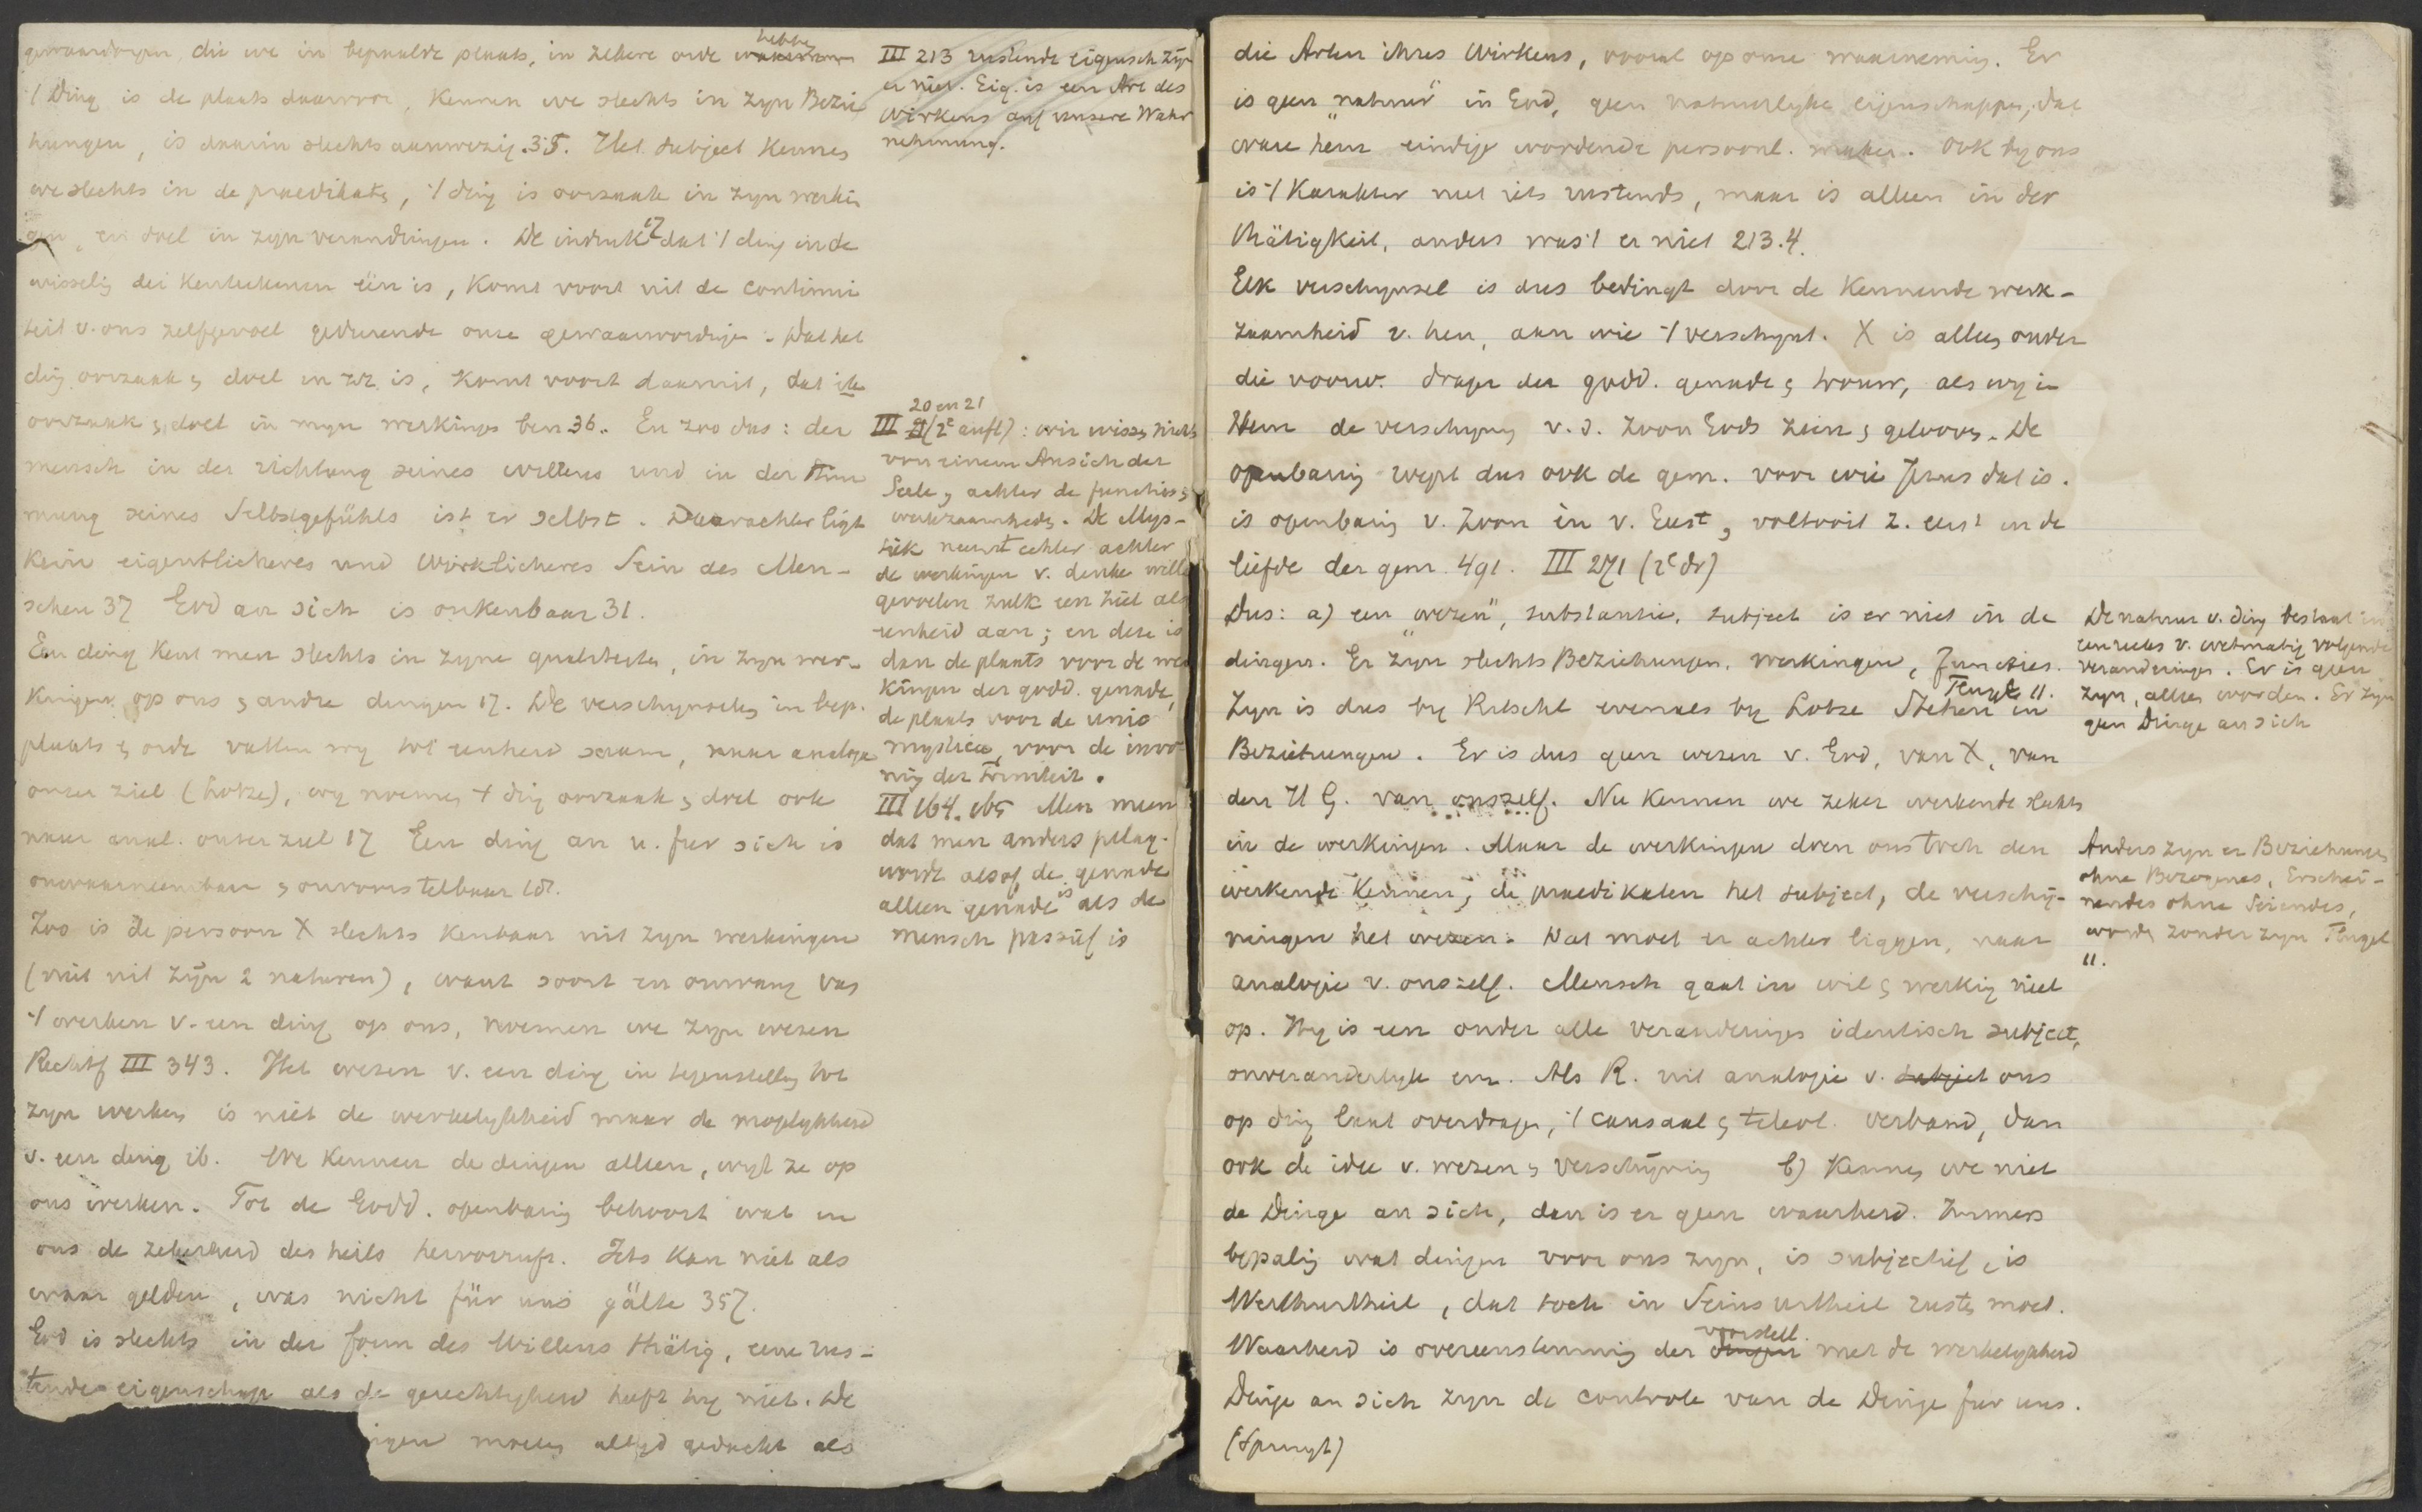 gewaarwordingen, die we in bepaalde plaats, in zekere orde hebben
't Ding is de plaats daarvoor, kennen we slechts in zyn Bezie
hungen, is daarin slechts aanwezig. 35. Het subject kennen
we slechts in de praedikaten, 't ding is oorzaak in zyn werkin
gen, en doel in zyn veranderingen. De indruk 17 dat 't ding in de
wisseling der kenteekenen één is, komt voort uit de continui
teit v. ons zelfgevoel gedurende onze gewaarwordingen. Dat het
ding oorzaak & doel in zz. is, komt voort daaruit, dat ik
oorzaak & doel in myn werkingen ben 36. En zoo dus: der
mensch in der richtung seines willens und in der Stim
mung seines Selbstgefühls ist er selbst. Daarachter ligt
kein eigentlicheres und Wirklicheres Sein des Men-
schen 37 God an sich is onkenbaar 31.
Een ding kent men slechts in zyne qualiteiten, in zyn wer-
kingen op ons & andre dingen 17. De verschynselen in bep.
plaats & orde vatten wy tot eenheid saam, naar analogie
onzer ziel (Lotze), wy noemen 't ding oorzaak & doel ook
naar anal. onzer ziel 17 Een ding an u. fur sich is
onwaarneembaar & onvoorstelbaar 18.
Zoo is de persoon X slechts kenbaar uit zyn werkingen
(niet uit zyn 2 naturen), want soort en omvang van
't werken v. een ding op ons, noemen we zyn wezen
Rechtf III 343. Het wezen v. een ding in tegenstelling tot
zyn werken is niet de werkelykheid maar de mogelykheid
v. een ding ib. We kennen de dingen alleen, wyl ze op
ons werken. Tot de Godd. openbaring behoort wat in
ons de zekerheid des heils hervorruft. Iets kan niet als
waar gelden, was nicht für uns gälte 357.
God is slechts in der form des Willens thätig, eene rus-
tende eigenschap als de gerechtigheid heeft hy niet. De
ingen moeten altyd gedacht als
III 213 rustende eigensch zyn
er niet. Eig. is een Art des
Wirkens auf unsere Wahr
nehmung.
20 en 21
III (2e aufl): wir wissen nichts
von einem Ansich der
Seele, achter de functies &
werkzaamheden. De Mys-
tiek neemt echter achter
de werkingen v. denken willen
gevoelen zulk een ziel als
eenheid aan; en deze is
dan de plaats voor de wer
kingen der godd. genade,
de plaats voor de unio
mystica, voor de inwo
ning der Triniteit.
III 164. 165 Men meen
dat men anders pelag.
wordt alsof de genade
alleen genade is als de
mensch passief is
die Arten ihres Wirkens, vooral op onze waarneming. Er
is geen "natuur" in God, geen natuurlyke eigenschappen, dat
ware hem eindige wordende persoonl. maken. Ook by ons
is 't Karakter niet iets rustends, maar is alleen in der
thätigkeit, anders was 't er niet 213.4.
Elk verschynsel is dus bedingt door de kennende werk-
zaamheid v. hen, aan wie 't verschynt. X is alleen onder
die voorw. drager der godd. genade & trouw, als wy in
Hem de verschyning v. d. Zoon Gods zien & gelooven. De
openbaring wyst dus ook de gem. voor wie Jezus dat is.
is openbaring v. Zoon in v. Geest, voltooit z. eerst in de
liefde der gem. 491. III 271 (2e dr)
Dus: a) een "wezen", substantie, subject is er niet in de
dingen. Er zyn slechts Beziehungen, werkingen, functies.
Zyn is dus by Ritschl evenals by Lotze Stehen in
Beziehungen. Er is dus geen wezen v. God, van X, van
den H G. van onszelf. Nu kennen we zeker werkende slechts
in de werkingen. Maar de werkingen doen ons toch den
werkende kennen, de praedikaten het subject, de verschy-
ningen het wezen. Dat moet er achter liggen, naar
analogie v. onszelf. Mensch gaat in wil & werking niet
op. Hy is een onder alle veranderingen identisch subject,
onveranderlyk enz. Als R. uit analogie v. subject ons
op ding laat overdragen, 't causaal & teleol. verband, dan
ook de idee v. wezen & verschyning b) Kennen we niet
de Dinge an sich, dan is er geen waarheid. Immers
bepaling wat dingen voor ons zyn, is subjectief, is
Werthurtheil, dat toch in Seinsurtheil rusten moet.
Waarheid is overeenstemming der voorstell. met de werkelykheid
Dinge an sich zyn de controle van de Dinge fur uns.
(Spruyt)
De natuur v. ding bestaat in
een reeks v. wetmatig volgende
veranderingen. Er is geen
zyn, alleen worden. Er zyn
geen Dinge an sich
Anders zyn er Beziehungen
ohne Bezogenes, Erschei-
nendes ohne Seiendes,
worden zonder zyn
11.